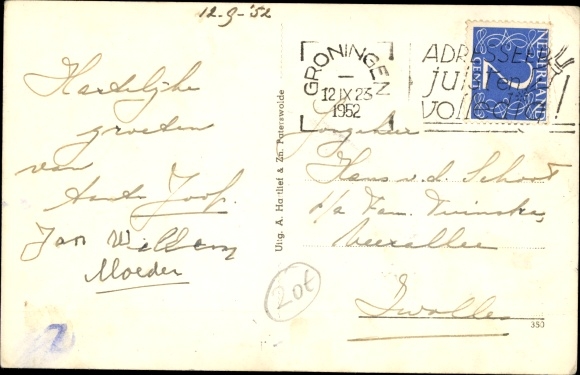 12-9-'52
Hartelijke
groeten
van
Tante Joop.
Jan Willem
Moeder
Uitg. A. Hartlief & Zn. Paterswolde
GRONINGEN
12 IX 23
1952
ADRESSEER
juist en
volledig!
NEDERLAND
Jongeheer
Hans v.d. Schoot
p/a Fam. Tuinstra,
Zwolle
20€
350